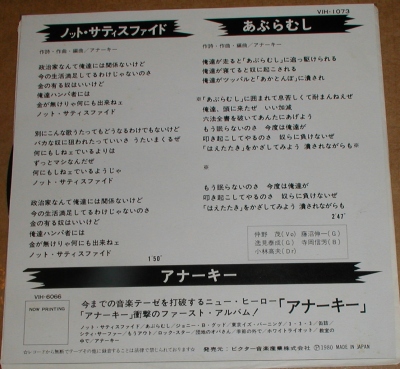 VIH-1073
ノット・サティスファイド
作詩・作曲・編曲／アナーキー
政治家なんて俺達には関係ないけど
今の生活満足してるわけじゃないのさ
金の有る奴はいいけど
俺達ハンパ者には
金が無けりゃ何にも出来ねェ
ノット・サティスファイド
別にこんな歌うたってもどうなるわけでもないけど
バカな奴に狙われたっていいさ うたいまくるぜ
何にもしねェでいるよりは
ずっとマシなんだぜ
何にもしねェでいるようじゃ
ノット・サティスファイド
政治家なんて俺達には関係ないけど
今の生活満足してるわけじゃないのさ
金の有る奴はいいけど
俺達ハンパ者には
金が無けりゃ何にも出来ねェ
ノット・サティスファイド
1'50"
あぶらむし
作詩・作曲・編曲／アナーキー
俺達が走ると「あぶらむし」に追っ駆けられる
俺達が寝てると奴に起こされる
俺達がツッパルと「あかとんぼ」に潰され
※「あぶらむし」に囲まれて息苦しくて耐まんねえぜ
俺達、頭に来たぜ いい加減
六法全書を破いてあんたにあげよう
もう眠らないのさ 今度は俺達が
叩き起こしてやるのさ 奴らに負けないぜ
「はえたたき」をかざしてみよう 潰されながらも※
※
もう眠らないのさ 今度は俺達が
叩き起こしてやるのさ 奴らに負けないぜ
「はえたたき」をかざしてみよう 潰されながらも
2'47"
仲野 茂(Vo) 藤沼伸一(G)
逸見泰成(G) 寺岡信芳(B)
小林高夫(Dr)
アナーキー
VIH-6068
NOW PRINTING
今までの音楽テーゼを打破するニュー・ヒーロー
「アナーキー」衝撃のファースト・アルバム！
「アナーキー」
ノット・サティスファイド／あぶらむし／ジョニー・B・グッド／東京イズ・バーニング／3・3・3／缶詰／
シティ・サーファー／もうアウト／ロック・スター／団地のオバさん／季節の外で／ホワイトライオット／教室の
中で／アナーキー
発売元：ビクター音楽産業株式会社
Ⓒ1980 MADE IN JAPAN